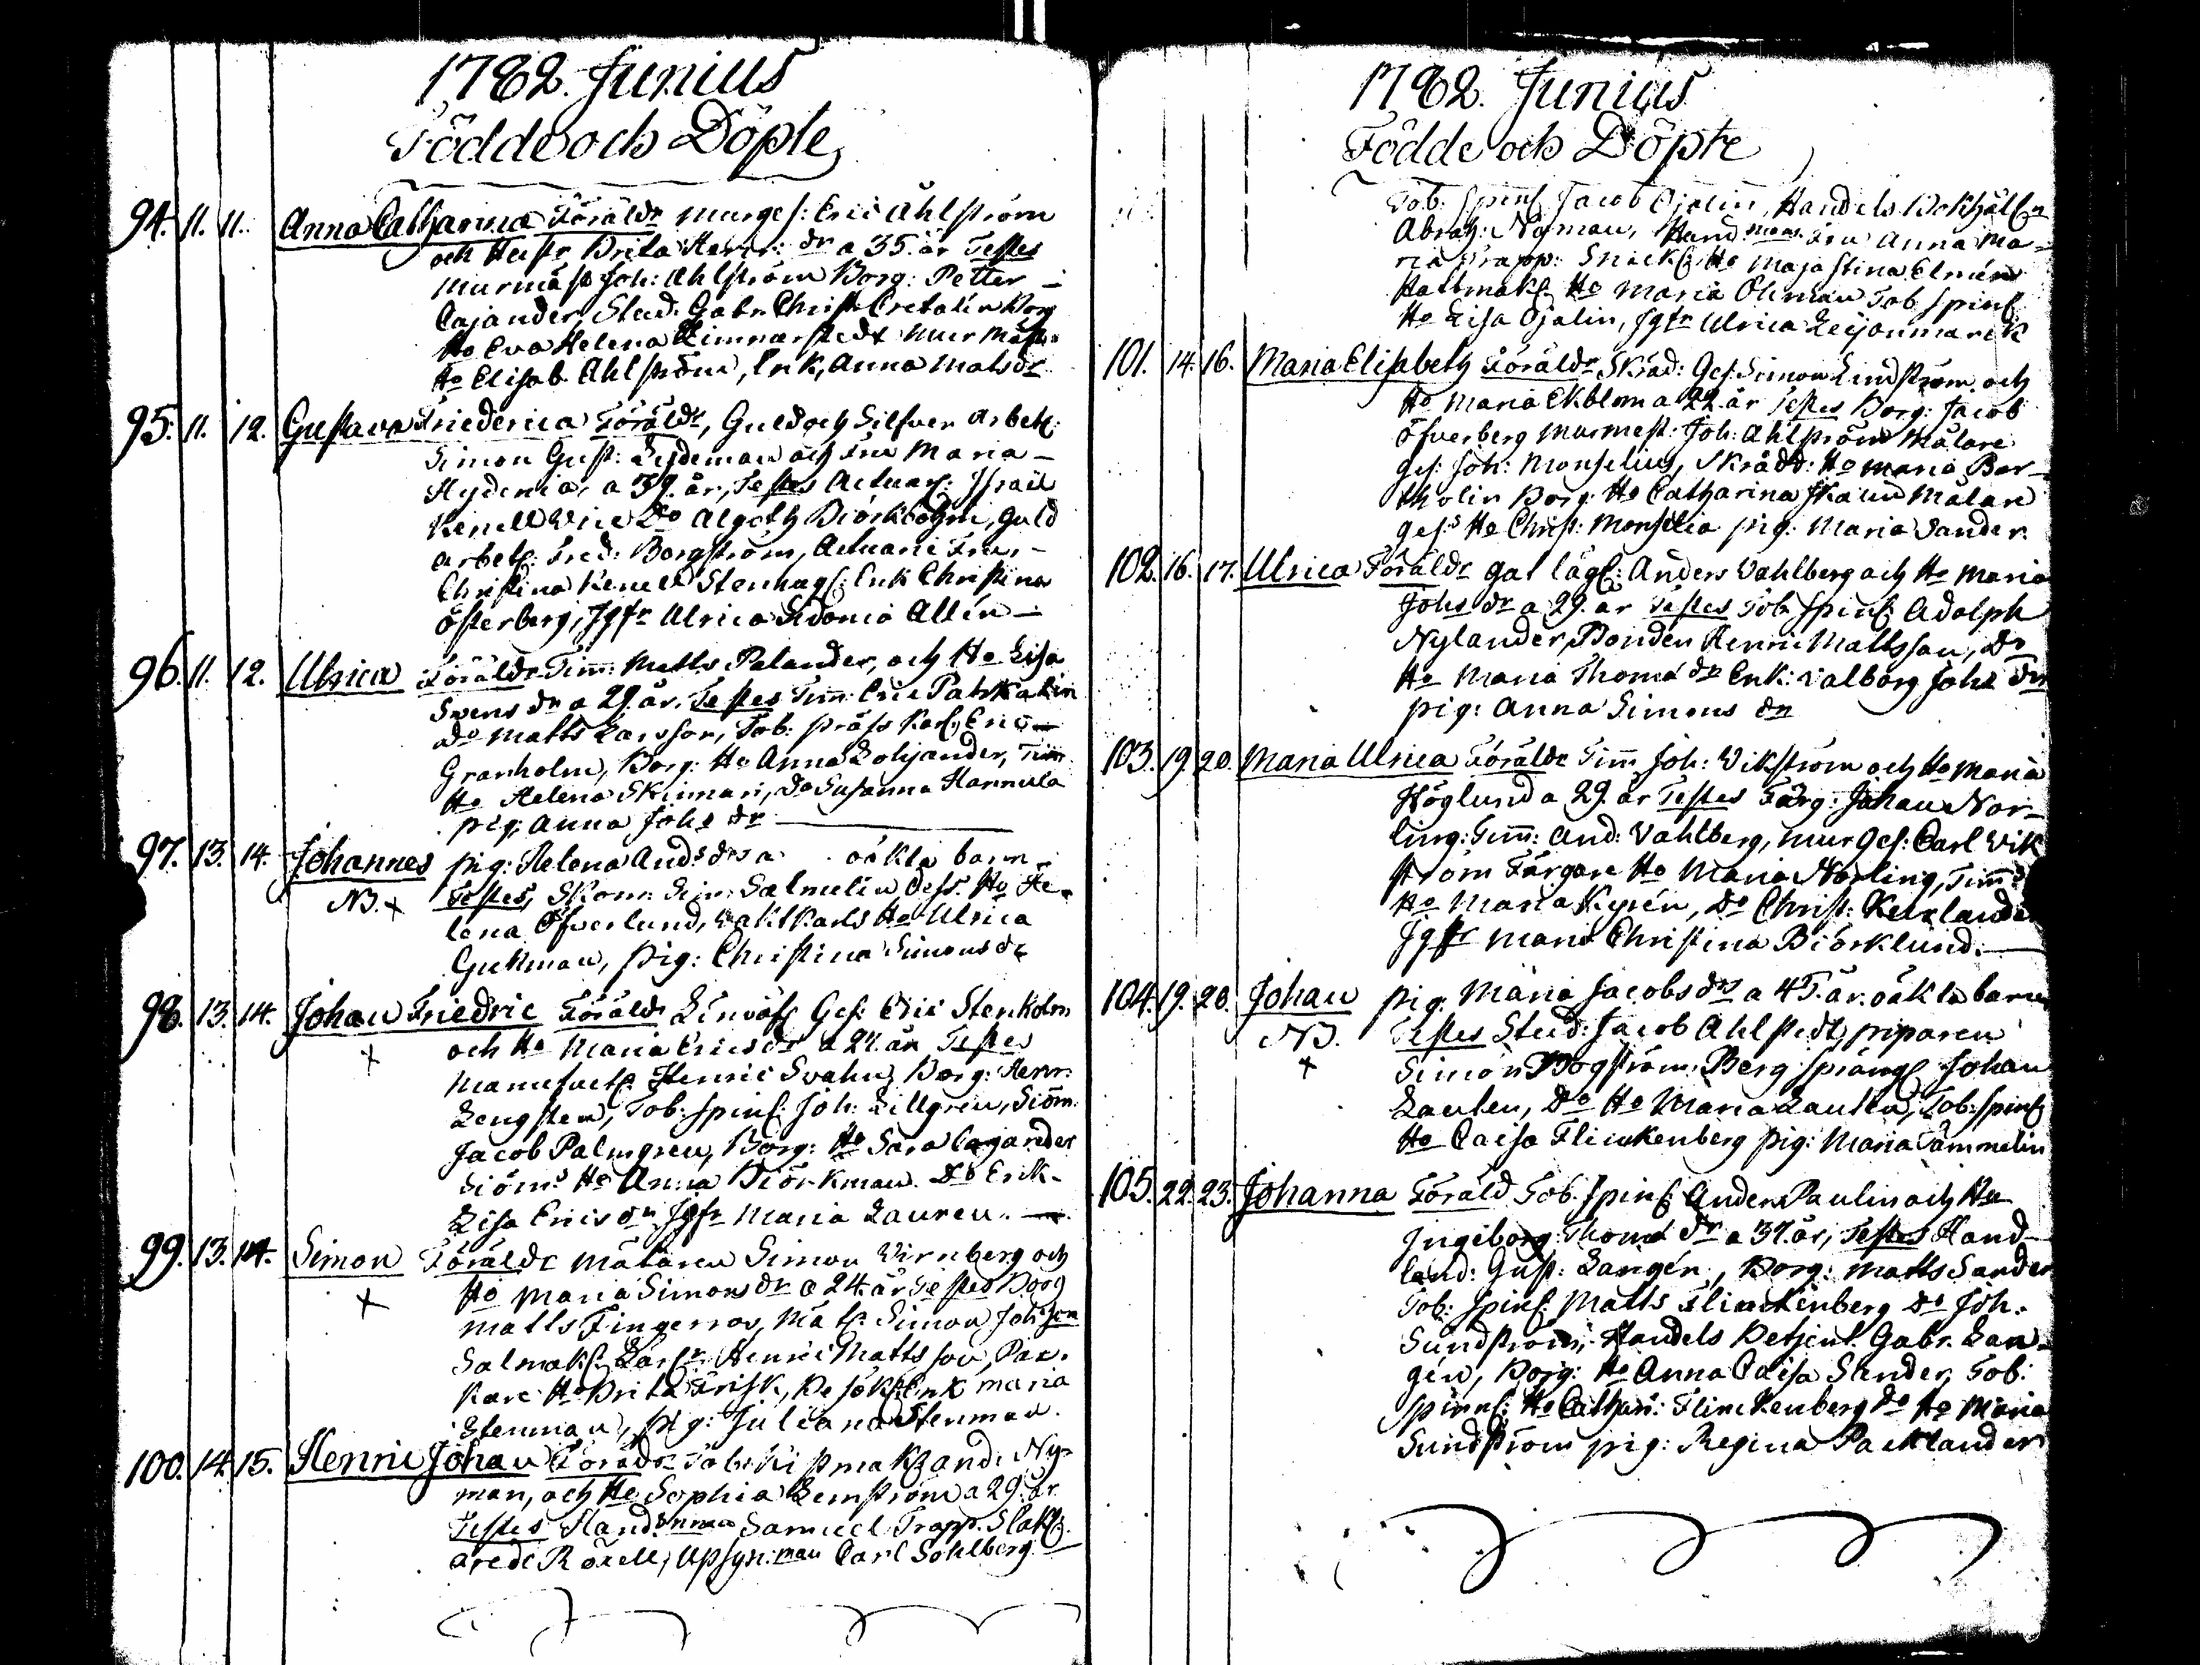 1782. Junius
Födde och Döpte
94. 11. 11. Anna Catharina Föräldr Murges: Eric Ahlström
och Hustr Brita Henr: dr a 35. år Testes
Murmäst Joh: Ahlström Borg: Petter
Cajander, Stud. Gabr. Christ. Cretalin Borg
Ho Eva Helena Mur Mäst:
Ho Elisab. Ahlström, Enk, Anna Mats dr
95. 11. 12. Gustava Friederica Föräldr, Guld och Silfver arbet:
Simon Gust: Lydeman och Fru Maria
Hydenia, a 39. år, Testes Actuar: Israel
Kenell Vice Do Algoth Biörkbohm, Guld
arbet: Fred: Borgström, Actuarie Fru,
Christina Kenell Stenhug: Enk Christina
Österberg, Jgfr Ulrica Sidonia Allén
96. 11. 12. Ulrica Föräldr Tim: Matts Pelander, och Ho Lisa
Svens dr a 29. år. Testes Tim: Eric
Do Matts Larsson, Tob: präss Karl, Eric
Granholm, Borg: Ho Anna Lohjander, Tim
Ho Helena Skinnari, Do Susanna Hannula
pig: Anna Johs dr
97. 13. 14. Johannes pig: Helena Ands drs a oäkta barn
NB. + Testes, Skom: Sim: Salmelin dess Ho He-
lena Öfverlund, vaktkarls Ho Ulrica
Gukman, pig: Christina Simons dr
98. 13. 14. Johan Friedric Föräldr Linväf: Ges: Eric Stenholm
+ och Ho Maria Erics dr a 27. år Testes
Manufact: Henric Svahn, Borg: Henr:
Lengsten, Tob: spinf: Joh: Lillgren, Siöm:
Jacob Palmgren, Borg: Ho Sara Cajander
Siöms Ho Anna Biörkman. Do Erik-
Lisa Erics dr Jgfr Maria Lauren.
99. 13. 14. Simon Föräldr Mätaren Simon Virnberg och
+ Ho Maria Simons dr a 24. år Testes Borg
Matts Fingerroos, Mät: Simon Johsson
Salmak: Henric Mattsson, Pac-
kare Ho Brita Frisk, Besök: Enk Maria
Stenman, pig: Juliana Stenman.
100. 14. 15. Henric Johan Föräldr Tob: Kistmak: And: Ny-
man, och Ho Sophia Lemström a 29. år
Testes Hands man Samuel Trapp. Slakt:
arede Röxell, Upsyn: man Carl Sohlberg
1782. Junius
Födde och Döpte
Tob: Spinf Jacob Ojalin, Handels Bokhåll:
Abrah: Nyman, Hand mans Fru Anna Ma-
ria Trapp: Snick: Ho Maja Stina Elmén
Hattmak: Ho Maria Öhman Tob Spinf
Ho Lisa Ojalin, Jgfr Ulrica Leijonmarck
101. 14. 16. Maria Elisabeth Föräldr Skräd: Ges: Simon Lindström och
Ho Maria Ekblom a 22. år Testes Borg: Jacob
Öfverberg Murmest: Joh: Ahlström Målare
ges: Joh: Monselius, Skrädd: Ho Maria Bar-
tholin Borg: Ho Catharina Målare
ges: Ho Christ: Monselia pig: Maria Sander.
102. 16. 17. Ulrica Föräldr gat läg: Anders Vahlberg och Ho Maria
Johs dr a 29. år Testes Tob Spinf Adolph
Nylander, Bonden Henric Mattsson, Dr
Ho Maria Thoms dr Enk: Valborg Johs dr
pig: Anna Simons dr
103. 19. 20. Maria Ulrica Föräldr Tim Joh: Vikström och Ho Maria
Höglund a 29. år Testes Färg: Johan Nor-
ling: Tim: And: Vahlberg, Mur Ges: Carl Vik
ström Färgare Ho Maria Norling, Tim:
Ho Maria Kyrén, Do Christ:
Jgfr Maria Christina Biörklund.
104. 19. 20. Johan pig. Maria Jacobs drs a 45. år. oäkta barn
NB. Testes Stud: Jacob Ahlstedt, piparen
+ Simon Bogström, Berg spräng: Johan
Lauten, Do Ho Maria Lauten, Tob: spinf
Ho Caisa Flinckenberg pig: Maria Tammelin
105. 22. 23. Johanna Föräld Tob. Spinf: Anders Paulin och Ho
Ingeborg Thoms dr a 37. år, Testes Hand-
land: Gust: Langén, Borg: Matts Sander
Tob: Spinf: Matts Flinckenberg Do Joh.
Sundström, Handels Betjent. Gabr. Lan-
gén, Borg: Ho Anna Caisa Sander, Tob:
Spinnf: Ho Cathar: Flinckenberg Do Ho Maria
Sundström pig: Regina Packlander